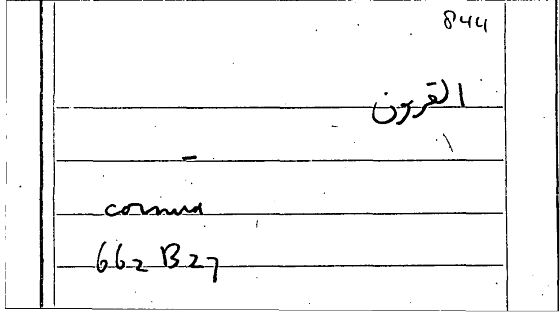 844
القرون
cornua
662 B27